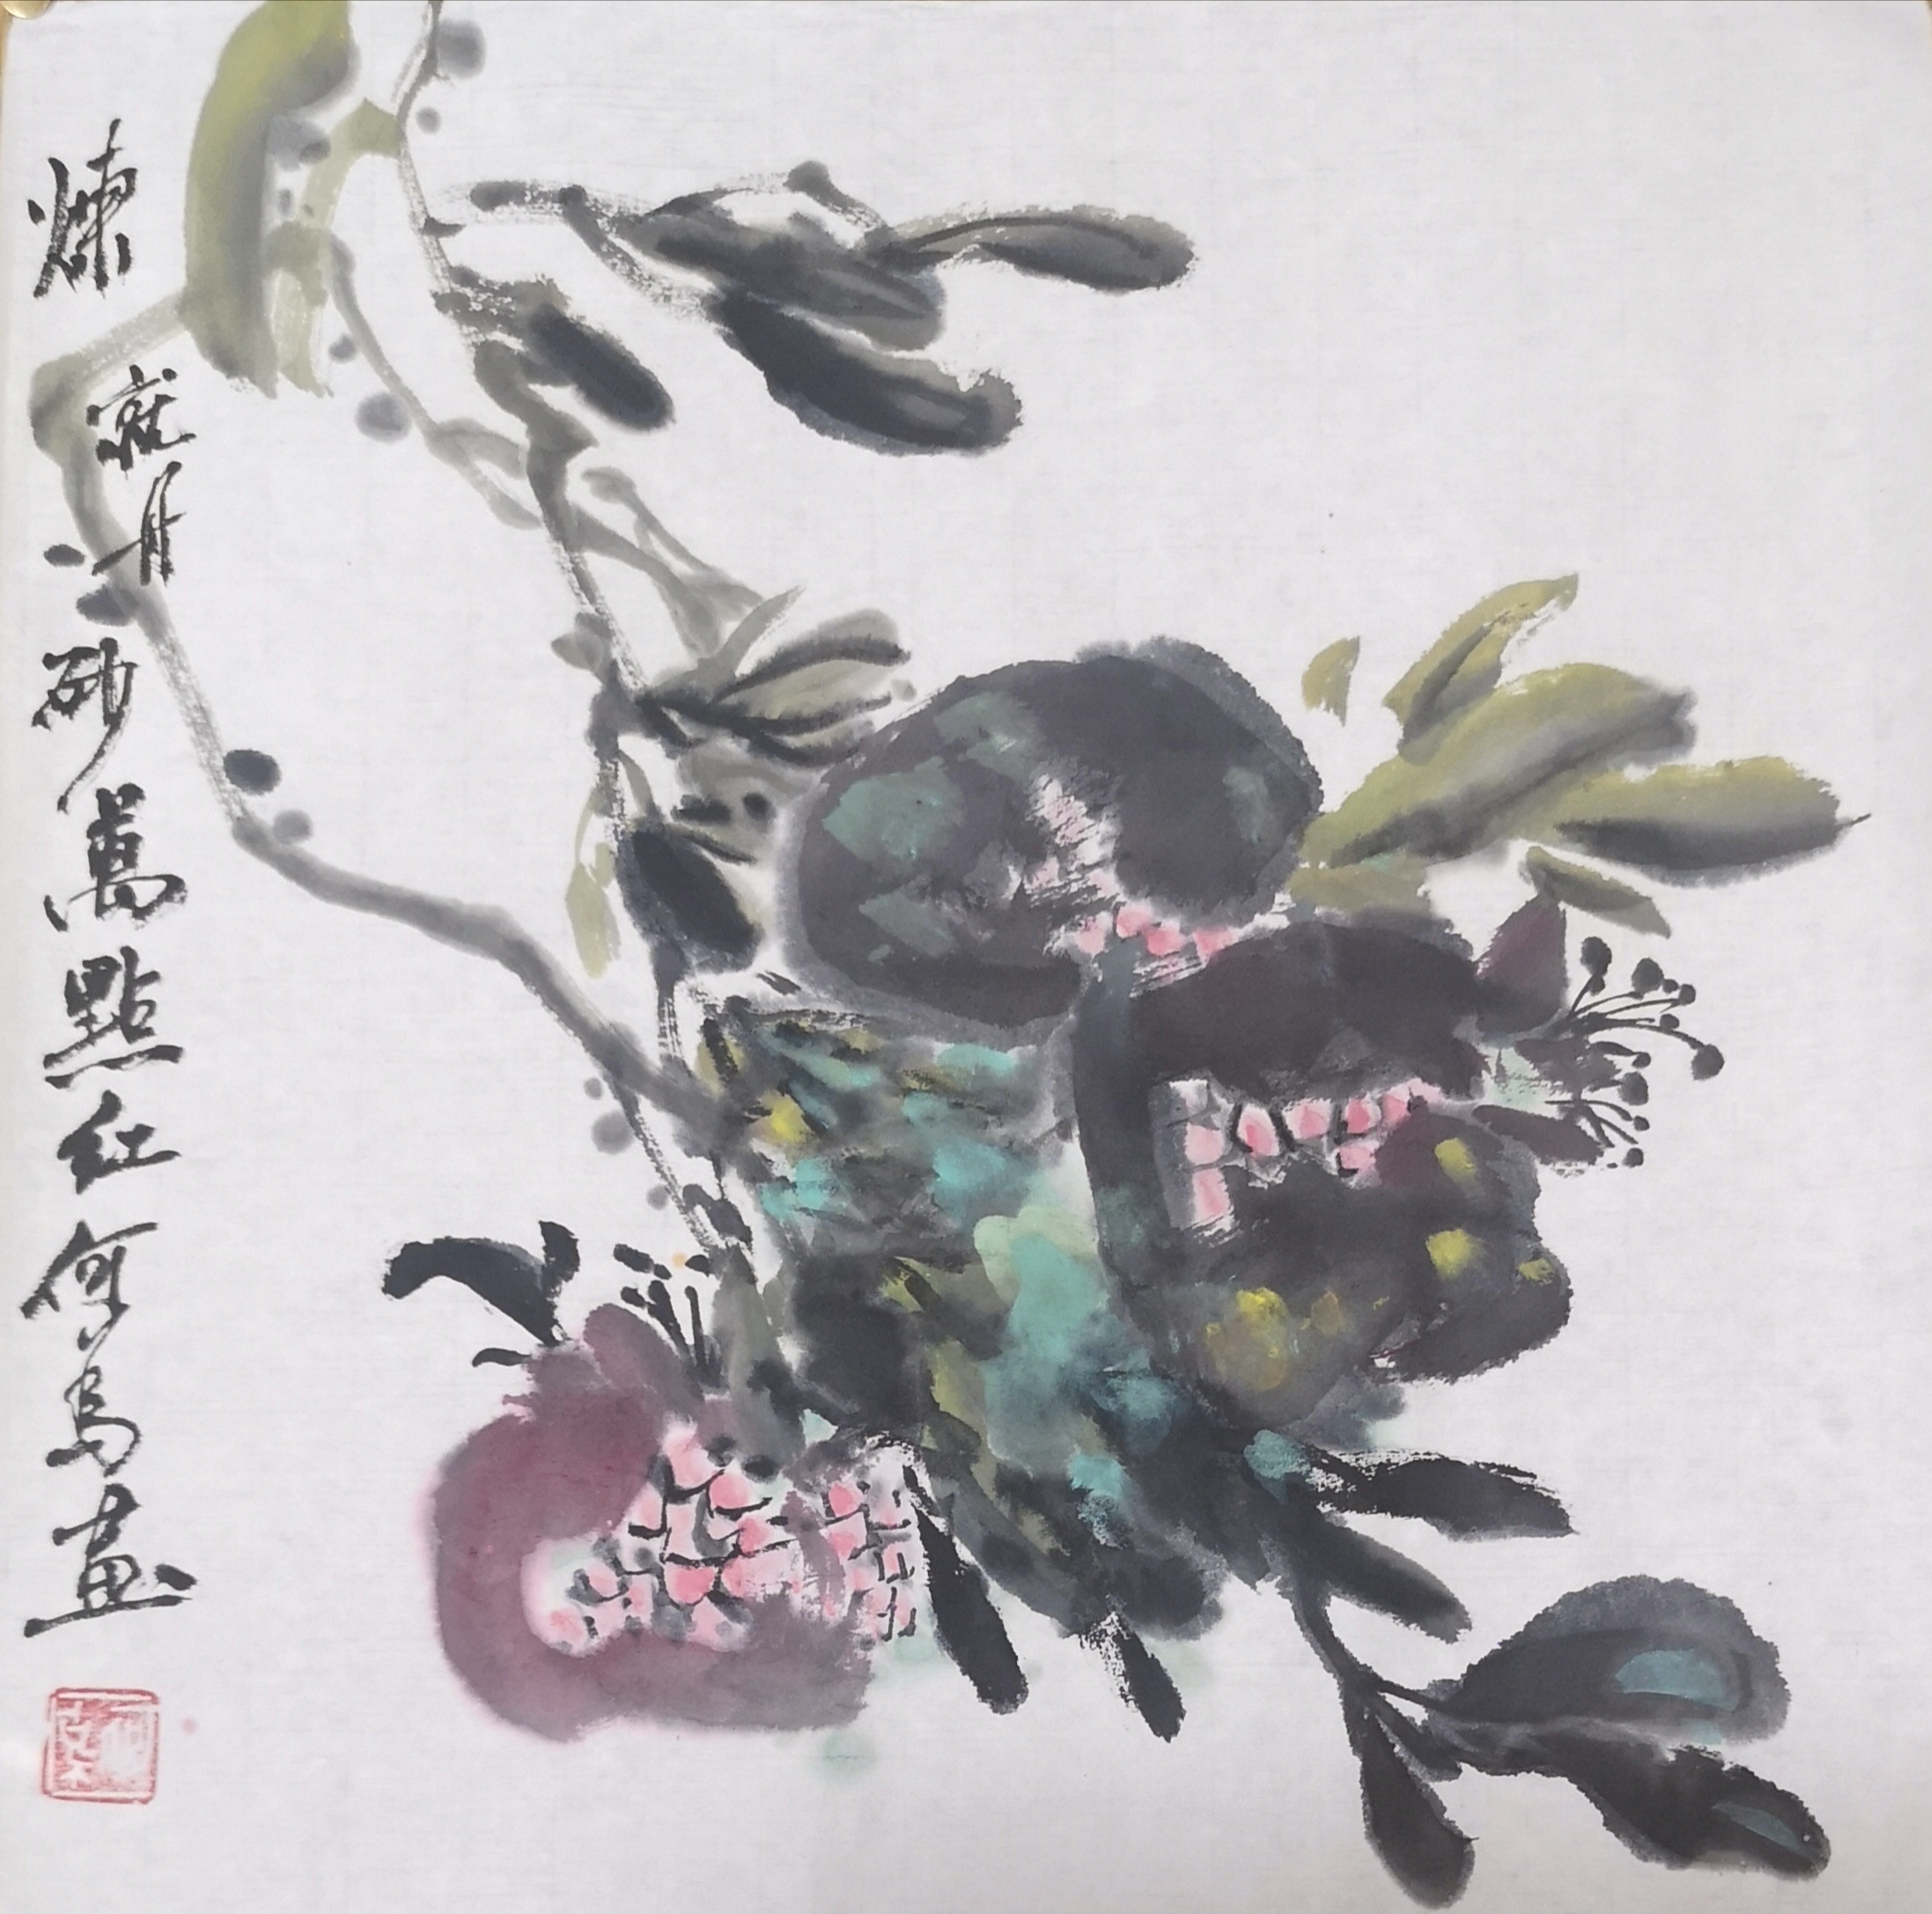 煉就丹砂萬點紅何烏畫